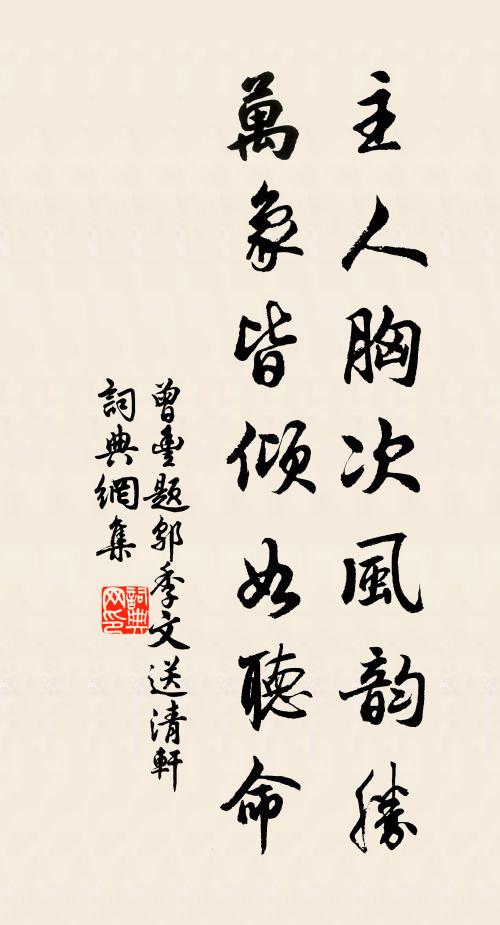 主人胸次風韵勝
萬象皆傾如聽命
曾豐題郭季文送清軒
詞典網集
詞典网印